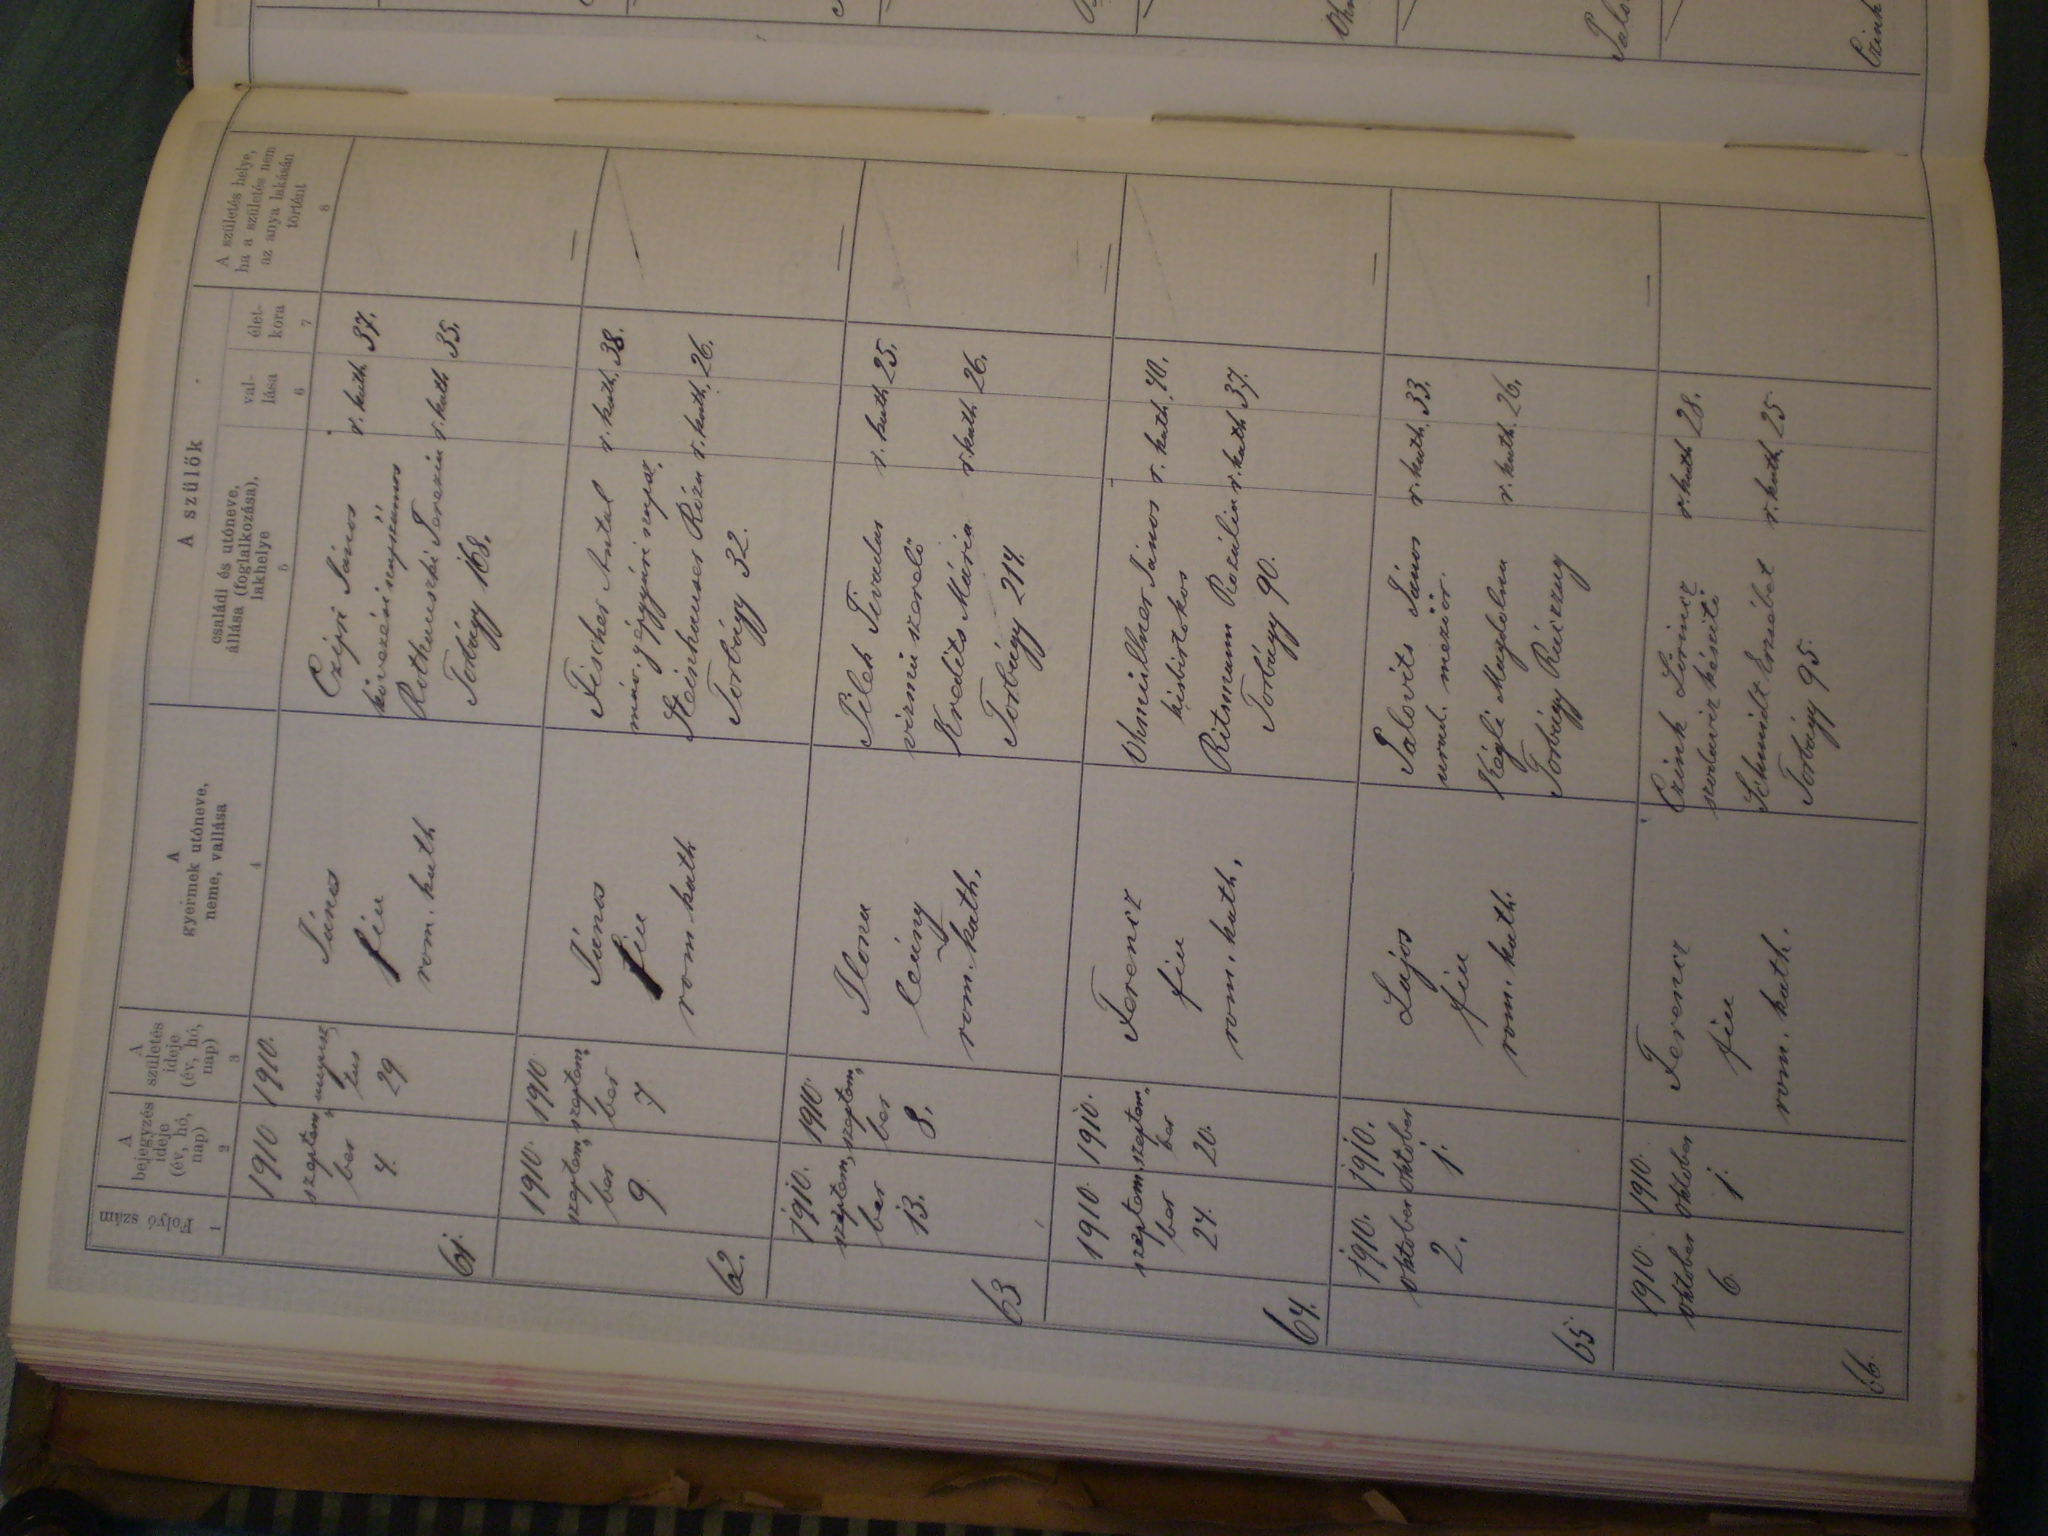 Folyó szám
1
A
bejegyzés
ideje
(év, hó,
nap)
2
A
születés
ideje
(év, hó,
nap)
3
A
gyermek utóneve,
neme, vallása
4
A szülők
családi és utóneve,
állása (foglalkozása),
lakhelye
5
val-
lása
6
élet-
kora
7
A születés helye,
ha a születés nem
az anya lakásán
történt
8
61.
1910
szeptem,
ber
4.
1910.
augusz,
tus
29
János
fiu
rom. kath
Czipri János
r. kath 37.
Rothauszki Terezia r. kath 35.
Torbágy 168.
62.
1910.
szeptem,
ber
9.
1910
szeptem,
ber
7
János
fiu
rom. kath
Fischer Antal r. kath. 38.
Steinhauser Róza r. kath. 26.
Torbágy 32.
63
1910.
szeptem,
ber
13.
1910
szeptem,
ber
8.
Ilona
leány
rom. kath.
Pilch Tivadar r. kath 25.
vizmü szerelő
Kredits Mária r. kath 26.
Torbágy 214.
64.
1910.
szeptem,
ber
24.
1910.
szeptem,
ber
20.
Ferencz
fiu
rom. kath.
Ohmüllner János r. kath. 40.
kisbirtokos
Ritmann Rozália r. kath 37.
Torbágy 90.
65
1910.
október
2.
1910.
október
1.
Lajos
fiu
rom. kath.
Palovits János r. kath. 33.
urad. mezőőr.
Kégli Magdolna r. kath. 26.
Torbágy
66.
1910
október
6.
1910.
október
1.
Ferencz
fiu
rom. kath.
Czink Lőrincz r. kath 28.
szodaviz készitő
Schmidt Erzsébet r. kath. 25
Torbágy 95.